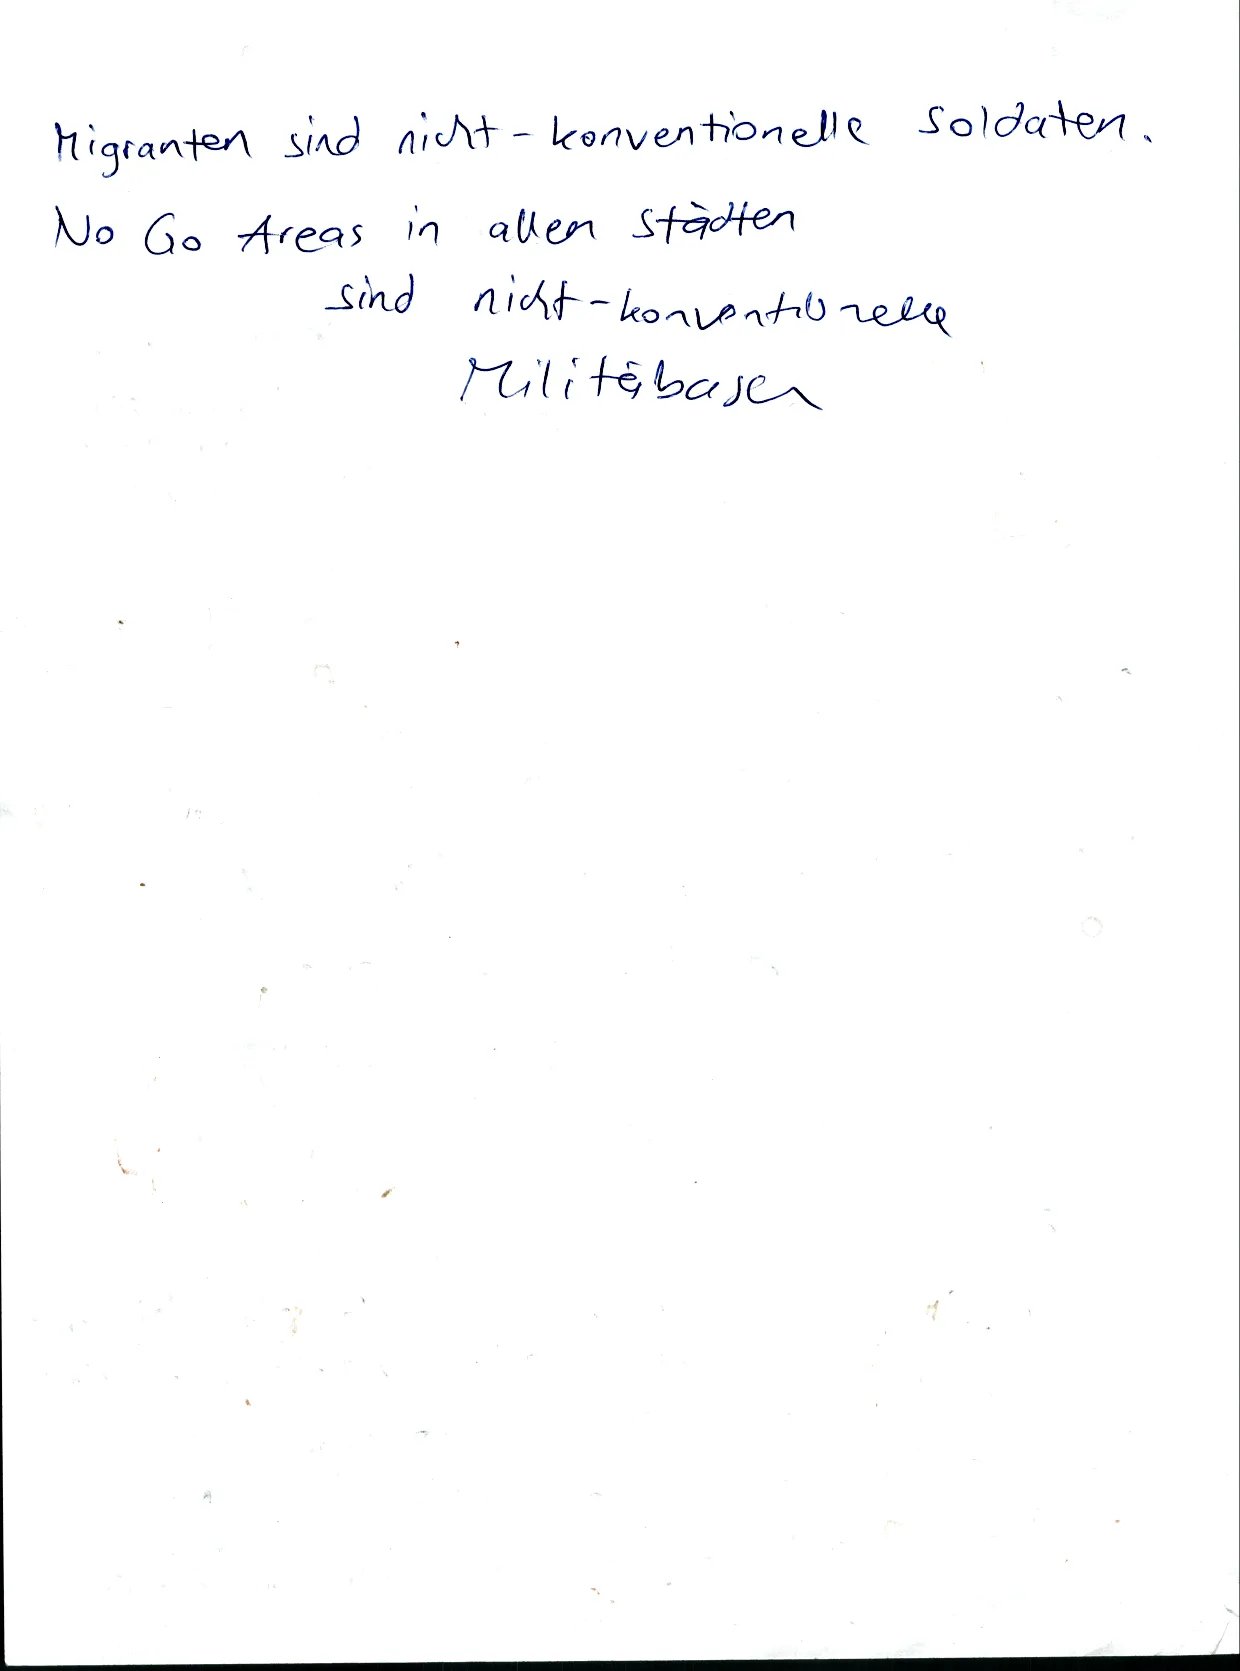 Migranten sind nicht-konventionelle Soldaten.
No Go Areas in allen Städten
sind nicht-konventionelle
Militäbasen